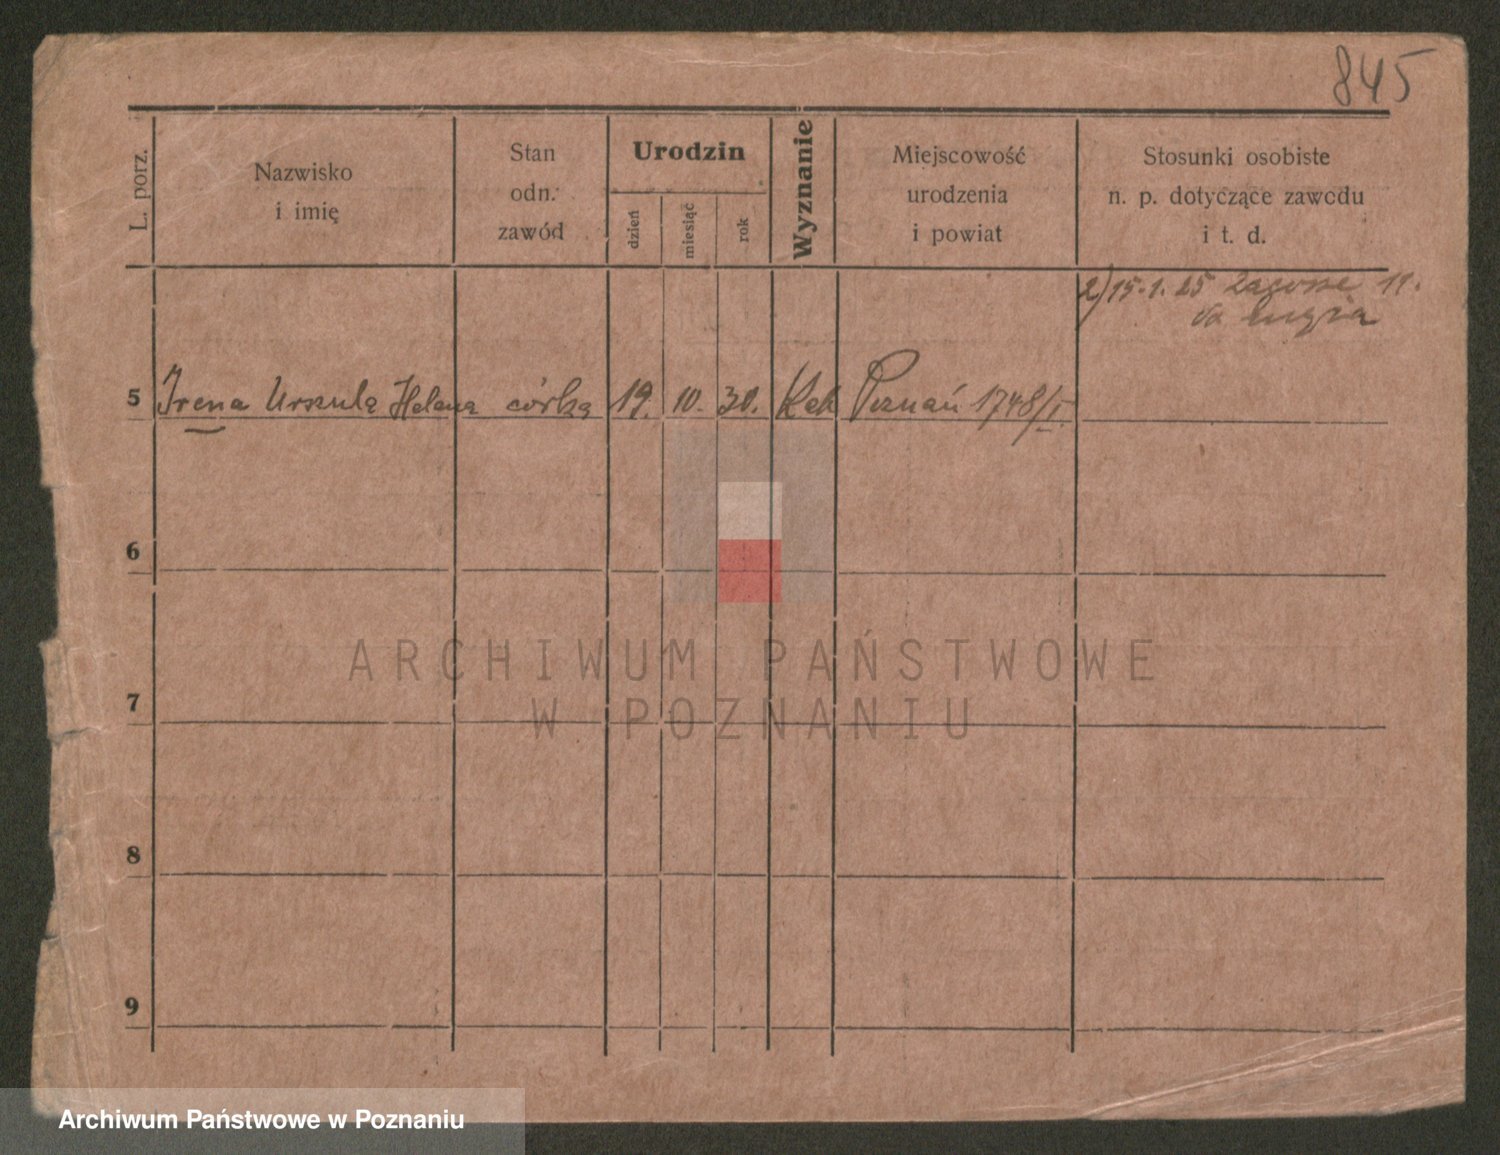 845
L. porz.
Nazwisko
i imię
Stan
odn.
zawód
Urodzin
dzień
miesiąc
rok
Wyznanie
Miejscowość
urodzenia
i powiat
Stosunki osobiste
n. p. dotyczące zawodu
i t. d.
2) 15.1.25 11.
5 Irena Urszula Helena córka 19. 10. 30. Poznań 1748/I.
6
ARCHIWUM PAŃSTWOWE
W POZNANIU
7
8
9
Archiwum Państwowe w Poznaniu